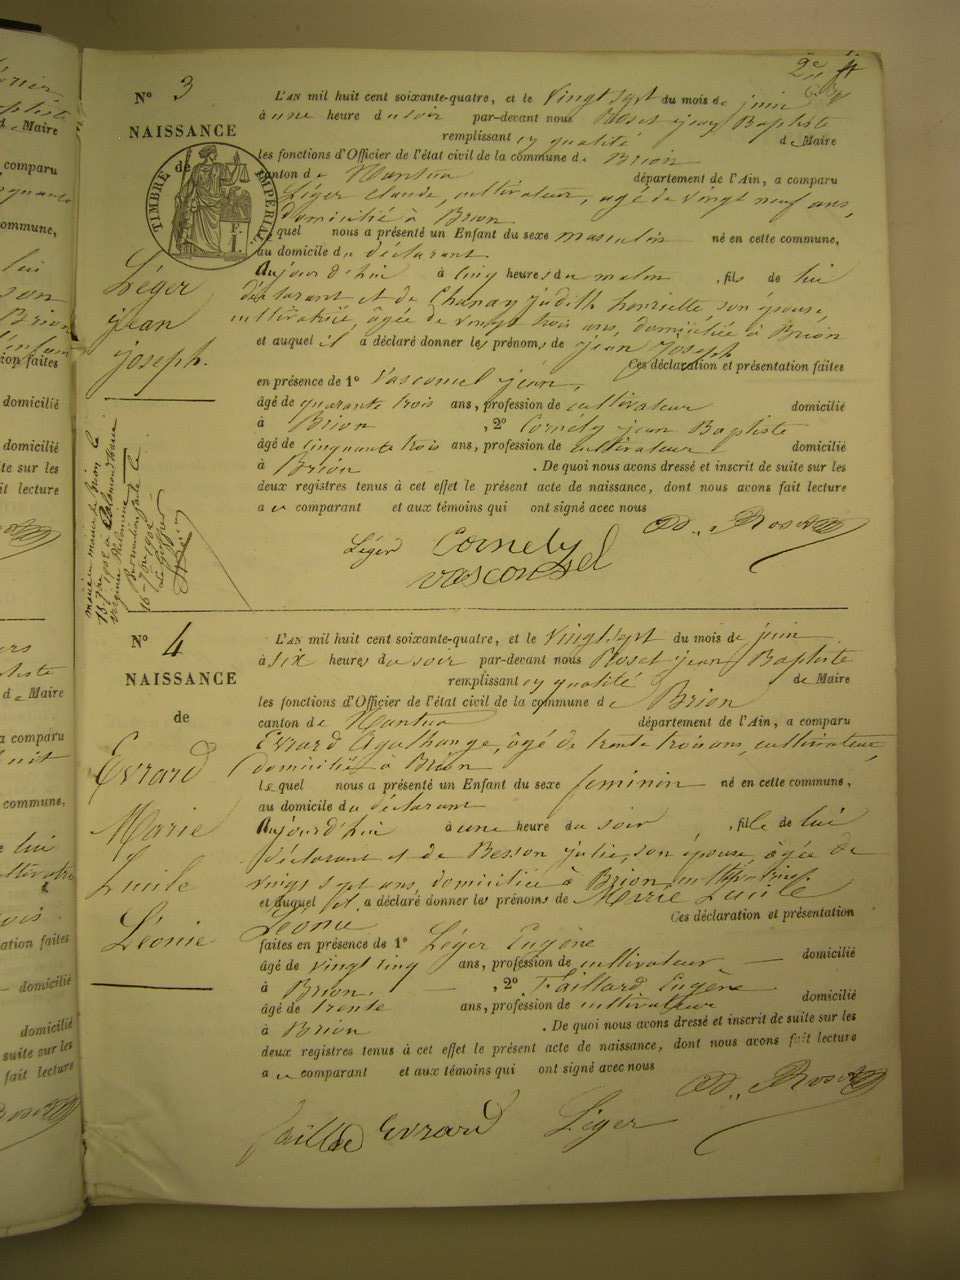 2e ft
Nº 3
NAISSANCE
de
TIMBRE IMPÉRIAL
Léger
jean
joseph.
L'AN mil huit cent soixante-quatre, et le vingt sept du mois de juin
à une heure du soir par-devant nous Roset jean Baptiste
remplissant en qualité de Maire
les fonctions d'Officier de l'état civil de la commune de Brion
canton de Nantua département de l'Ain, a comparu
Léger Claude, cultivateur, agé de vingt neuf ans,
domicilié à Brion
lequel nous a présenté un Enfant du sexe masculin né en cette commune,
au domicile du déclarant
Aujourd'hui à cinq heures du matin, fils de lui
déclarant et de Chanay Judith henriette, son épouse,
cultivatrice, âgée de vingt trois ans, domiciliée à Brion
et auquel il a déclaré donner les prénoms de jean Joseph
Ces déclaration et présentation faites
en présence de 1º Vasconsel jean,
âgé de quarante trois ans, profession de cultivateur domicilié
à Brion, 2º Cornély jean Baptiste
âgé de cinquante trois ans, profession de cultivateur domicilié
à Brion. De quoi nous avons dressé et inscrit de suite sur les
deux registres tenus à cet effet le présent acte de naissance, dont nous avons fait lecture
au comparant et aux témoins qui ont signé avec nous
Léger Cornely Roset
vasconsel
Nº 4
NAISSANCE
de
Evrard
Marie
Lucile
Léonie
L'AN mil huit cent soixante-quatre, et le vingt sept du mois de juin
à six heures du soir par-devant nous Roset jean Baptiste
remplissant en qualité de Maire
les fonctions d'Officier de l'état civil de la commune de Brion
canton de Nantua département de l'Ain, a comparu
Evrard Agathange, âgé de trente trois ans, cultivateur,
domicilié à Brion
lequel nous a présenté un Enfant du sexe féminin né en cette commune,
au domicile du déclarant
Aujourd'hui à une heure du soir, fille de lui
déclarant et de Besson julie, son épouse, âgée de
vingt sept ans, domiciliée à Brion, cultivatrice
et auquel il a déclaré donner les prénoms de Marie Lucile
Léonie. Ces déclaration et présentation
faites en présence de 1º Léger Eugène
âgé de vingt cinq ans, profession de cultivateur domicilié
à Brion, 2º Faillard Eugène
âgé de trente ans, profession de cultivateur domicilié
à Brion. De quoi nous avons dressé et inscrit de suite sur les
deux registres tenus à cet effet le présent acte de naissance, dont nous avons fait lecture
au comparant et aux témoins qui ont signé avec nous
Roset
Evrard Léger